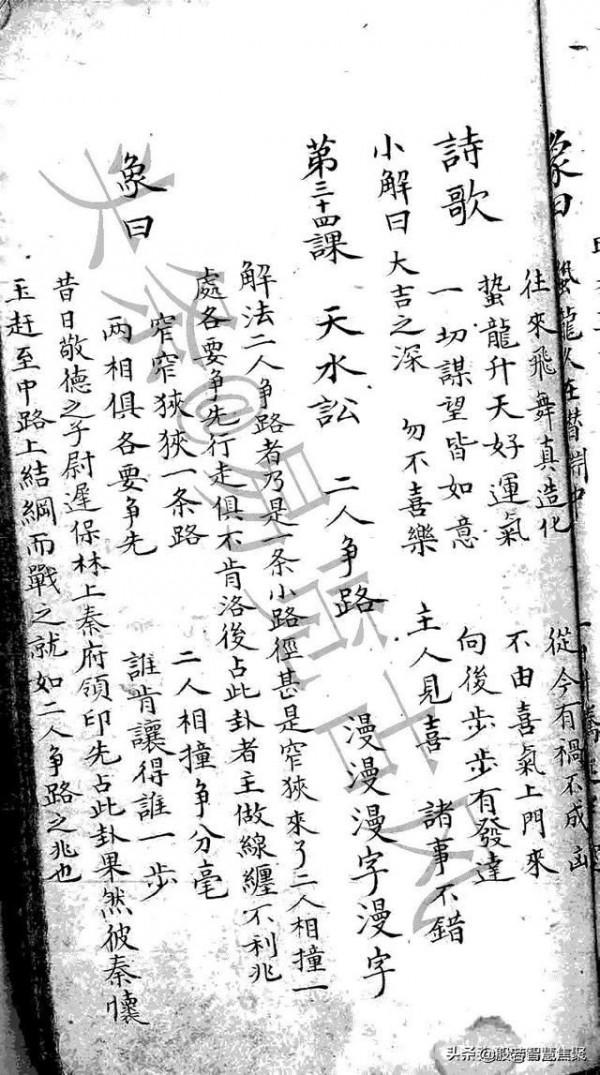 象曰 龍久在
往來飛舞真造化 從今有禍不成凶
詩歌 蟄龍升天好運氣 不由喜氣上門來
一切謀望皆如意 向後步步有發達
小解曰 大吉之深 勿不喜樂 主人見喜 諸事不錯
第三十四課 天水訟 二人爭路 漫漫漫字漫字
解法二人爭路者乃是一条小路徑甚是窄狹來了二人相撞一
處各要争先行走俱不肯洛後占此卦者主做線纏不利兆
象曰 窄窄狹狹一条路 二人相撞争分毫
兩相俱各要争先 誰肯讓得誰一步
昔日敬德之子尉遲保林上秦府領印先占此卦果然彼秦懷
玉赶至中路上結綱而戰之就如二人爭路之兆也
头条@般若智慧焦聚